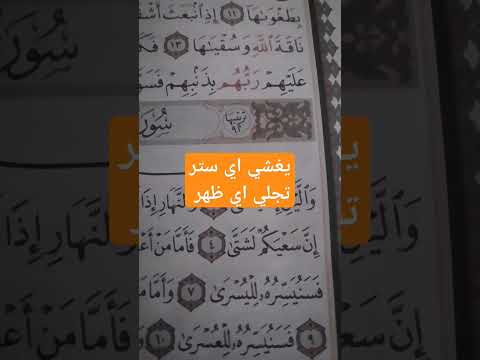 بِطَغْوَىٰهَآ ١١ إِذِ ٱنۢبَعَثَ
نَاقَةَ ٱللَّهِ وَسُقْيَٰهَا ١٣
عَلَيْهِمْ رَبُّهُم بِذَنۢبِهِمْ
ترتيبها ٩٢
يغشي اي ستر
تجلي اي ظهر
وَٱلَّيْلِ وَٱلنَّهَارِ إِذَا
إِنَّ سَعْيَكُمْ لَشَتَّىٰ ٤ فَأَمَّا مَنْ
فَسَنُيَسِّرُهُۥ لِلْيُسْرَىٰ ٧ وَأَمَّا
٩ فَسَنُيَسِّرُهُۥ لِلْعُسْرَىٰ ١٠